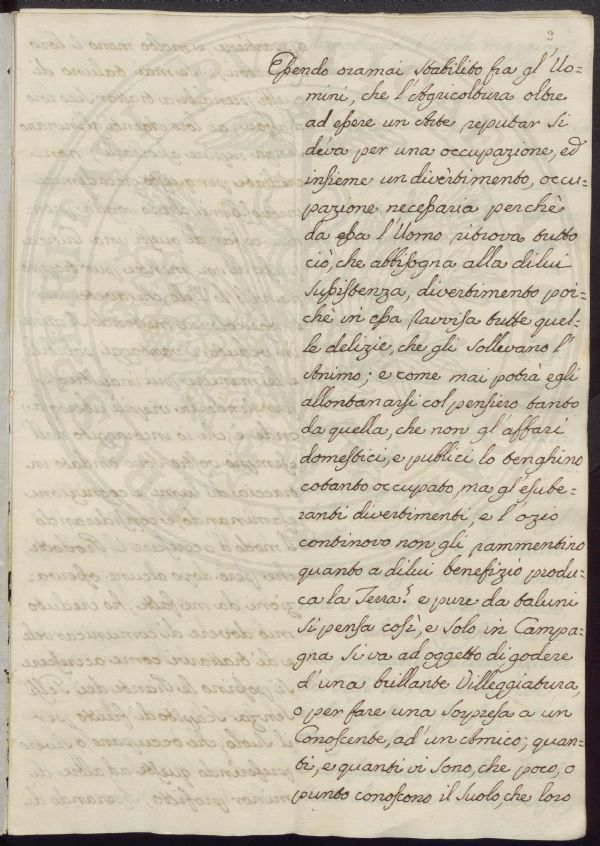 2
Essendo oramai stabilito fra gl'Uo=
mini, che l'Agricoltura oltre
ad essere un Arte reputar si
deva per una occupazione, ed
insieme un divertimento, occu=
pazione necessaria perchè
da essa l'Uomo ritrova tutto
ciò, che abbisogna alla di lui
sussistenza, divertimento poi=
chè in essa ravvisa tutte quel=
le delizie, che gli sollevano l'
Animo; e come mai potrà egli
allontanarsi col pensiero tanto
da quella, che non gl'affari
domestici, e publici lo tenghino
cotanto occupato, ma gl'esube=
ranti divertimenti, e l'ozio
continovo non gli rammentino
quanto a di lui benefizio produ=
ca la Terra? e pure da taluni
si pensa così, e solo in Campa=
gna si va ad oggetto di godere
d'una brillante Villeggiatura,
o per fare una sorpresa a un
Conoscente, ad'un Amico; quan=
ti, e quanti vi sono, che poco, o
punto conoscono il suolo, che loro